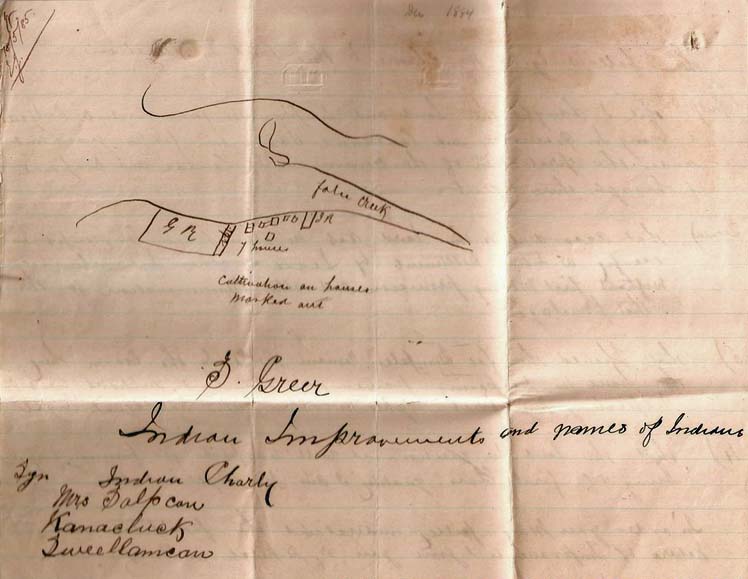 Dec 1884
false creek
G R
I R
7 houses
Cultivation on houses
Marked out
S. Greer
Indian Improvements and names of Indians
Sgn Indian Charly
Mrs Salpcan
Kanacluck
Sweellamcan